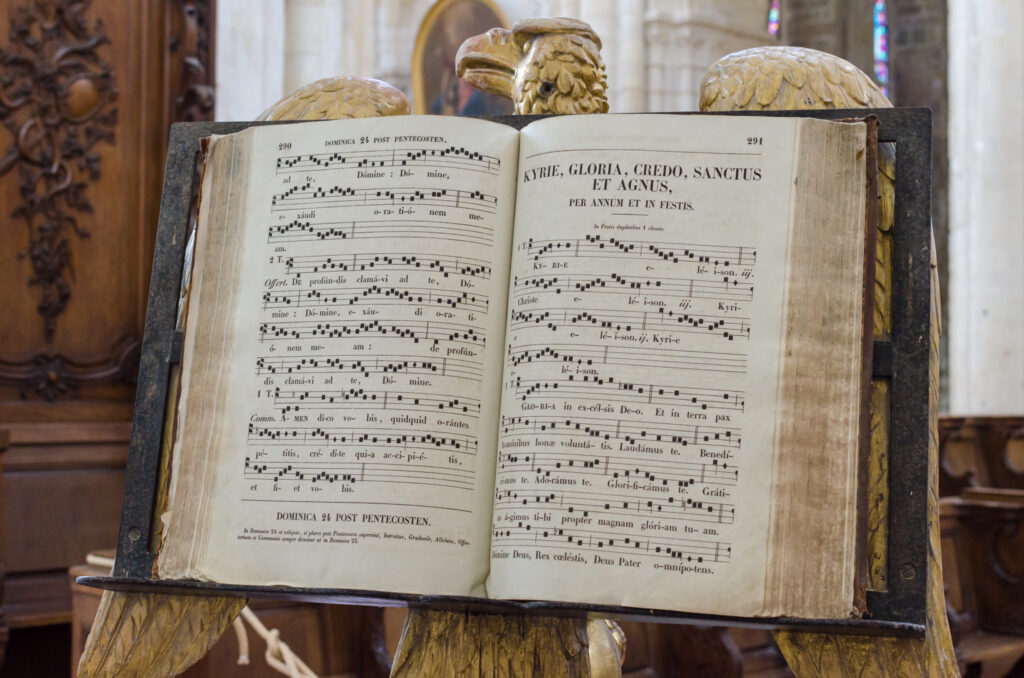 290 DOMINICA 24 POST PENTECOSTEN.
ad te, Dómine : Dó- mine,
e- xáudi o-ra-ti-ó- nem me-
am.
2 T.
Offert. DE profún-dis clamá-vi ad te, Dó-
mine : Dó-mine, e-xáu- di o-ra- ti-
ó- nem me- am : de profún-
dis clamá-vi ad te, Dó- mine.
1 T.
Comm. A-MEN di-co vo- bis, quidquid o-rántes
pé- titis, cré-di-te qui-a ac-ci-pi-é-tis,
et fi-et vo- bis.
DOMINICA 24 POST PENTECOSTEN.
In Dominica 24 et reliquis, si plures post Pentecosten superant, Introitus, Graduale, Alleluia, Offer-
torium et Communio semper dicuntur ut in Dominica 23.
291
KYRIE, GLORIA, CREDO, SANCTUS
ET AGNUS,
PER ANNUM ET IN FESTIS.
In Festis duplicibus 1 classis.
1 T.
KY-RI-E e- lé-i-son. iij.
Christe e- lé-i-son. iij. Kyri-
e e- lé-i-son. ij. Kyri-e
e- lé-i-son.
1 T.
GLO-RI-A in ex-cél-sis De-o. Et in terra pax
hominibus bonæ voluntá-tis. Laudámus te. Benedí-
cimus te. Ado-rámus te. Glori-fi-cámus te. Gráti-
as á-gimus ti-bi propter magnam glóri-am tu-am.
Dómine Deus, Rex cœléstis, Deus Pater o-mnípo-tens.